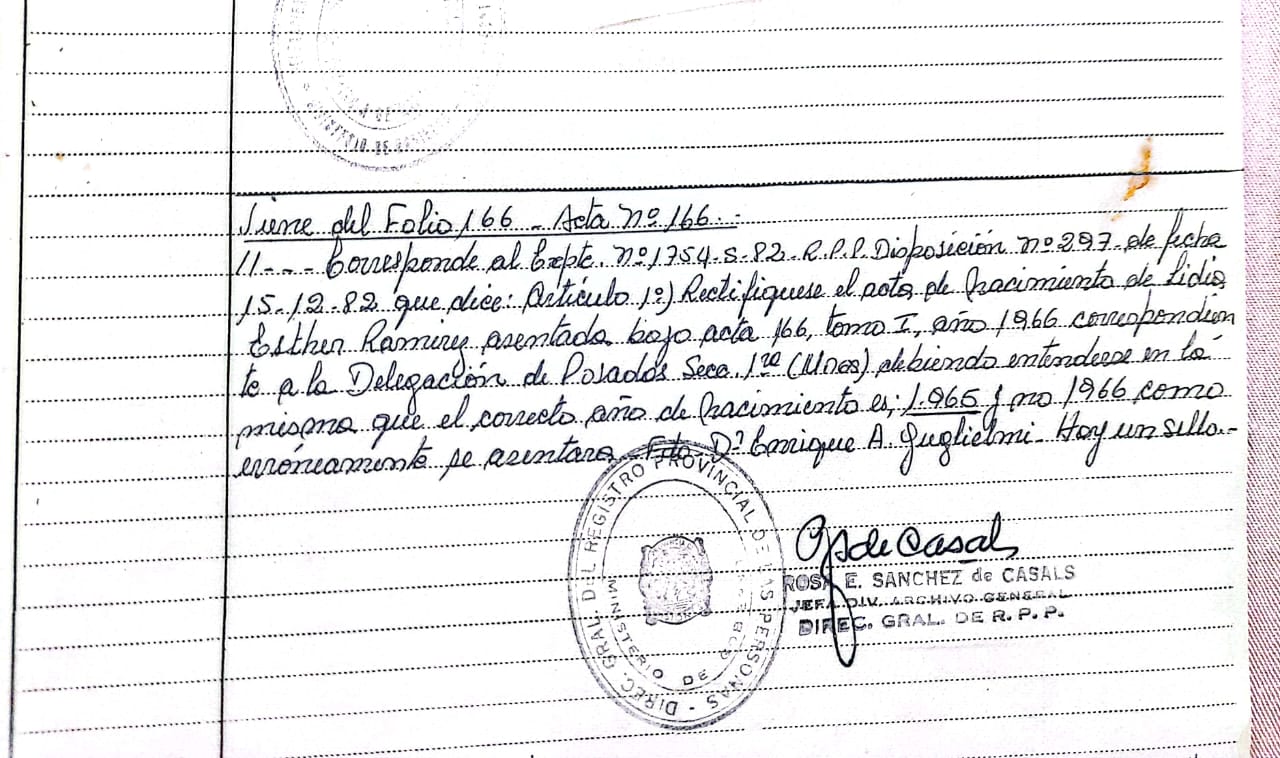 MINISTERIO DE
Viene del Folio 166 - Acta Nº 166.-
//--- Corresponde al Expte. Nº 1754-S-82-R.P.P. Disposición nº 297 de fecha
15-12-82 que dice: Artículo 1º) Rectifíquese el acta de nacimiento de Lidia
Esther Ramirez asentada bajo acta 166, tomo I, año 1966 correspondien
te a la Delegación de Posadas Secc. 1ra (Mnes) debiendo entenderse en la
misma que el correcto año de nacimiento es: 1.965 y no 1966 como
erróneamente se asentara - Fdo. Dº Enrique A. Guglielmi - Hay un sello.-
DIREC. GRAL. DEL REGISTRO PROVINCIAL DE LAS PERSONAS -
MINISTERIO DE GOBIERNO
ROSA E. SANCHEZ de CASALS
JEFA DIV. ARCHIVO GENERAL
DIREC. GRAL. DE R. P. P.